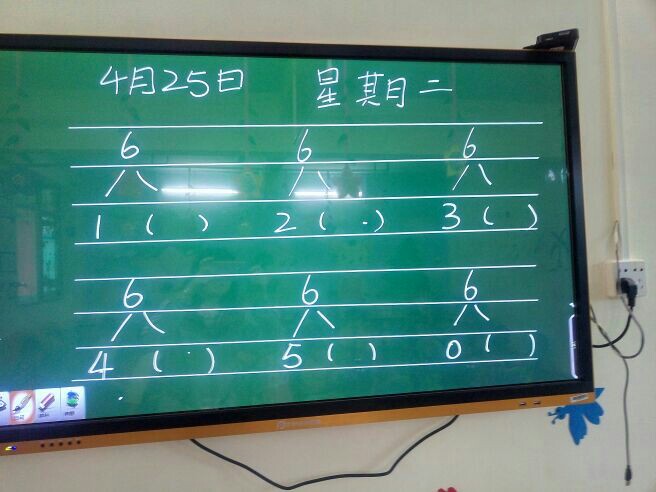 4月25日 星期二
6 6 6
1 ( ) 2 ( ) 3 ( )
6 6 6
4 ( ) 5 ( ) 0 ( )